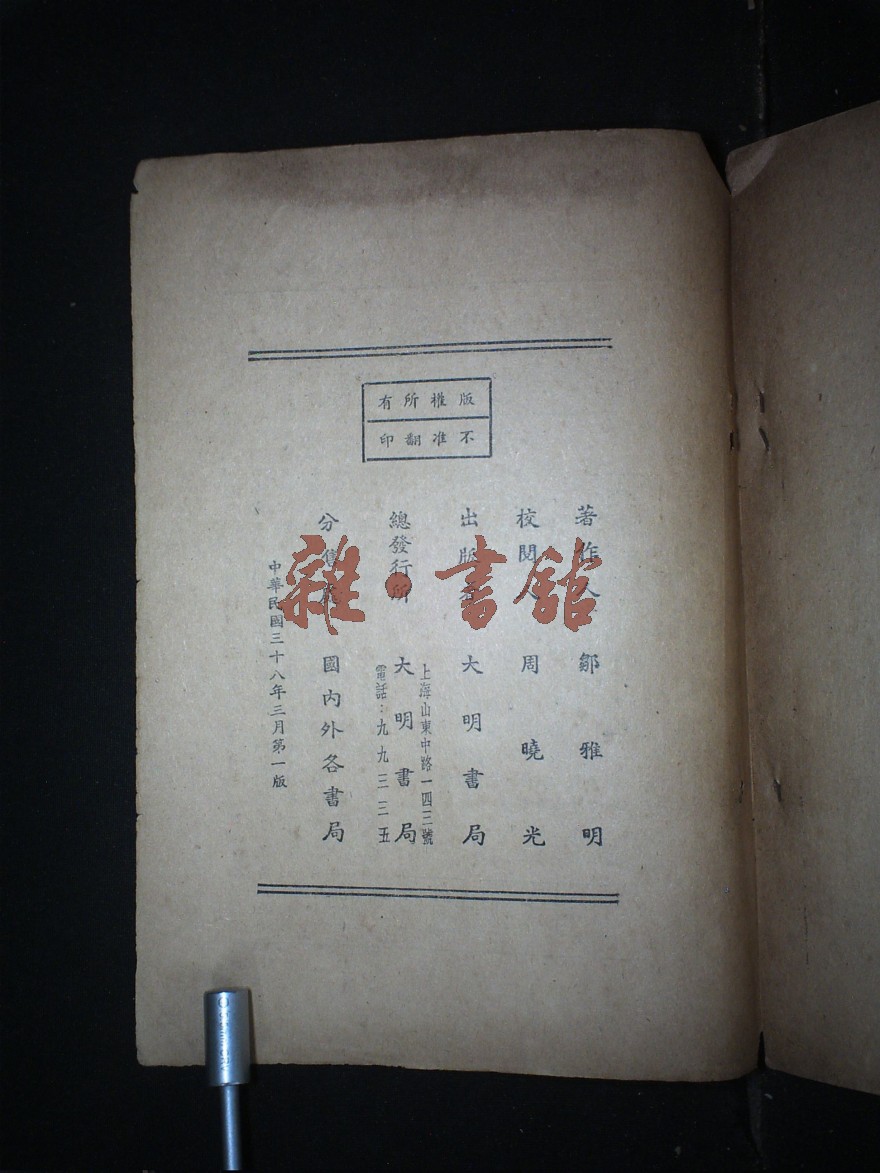 版權所有
不准翻印
著作人 鄒雅明
校閱人 周曉光
出版者 大明書局
總發行所 大明書局
上海山東中路一四三號
電話：九九三三五
分售處 國內外各書局
中華民國三十八年三月第一版
雜·書館